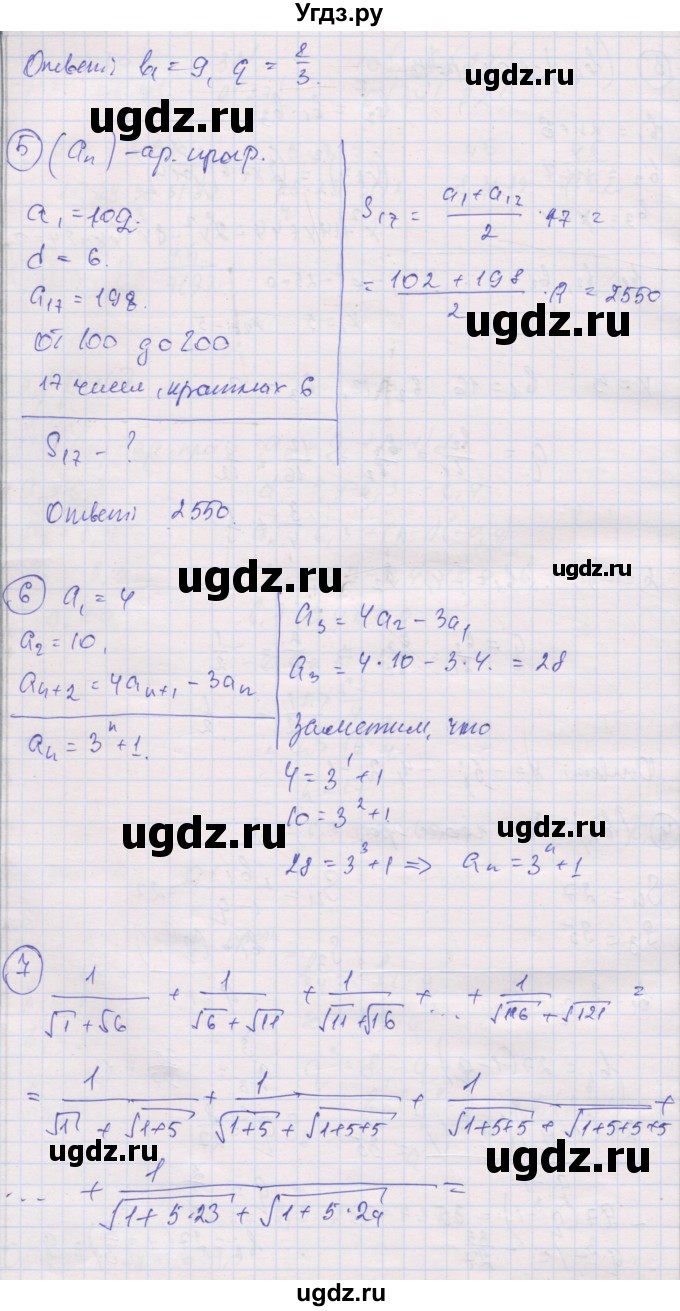 Угдз.ру
Ответ: b₁ = 9, q = 2/3.
ugdz.ru
ugdz.ru
5 (aₙ) - ар. прогр.
a₁ = 102.
d = 6.
a₁₇ = 198.
от 100 до 200
17 чисел, кратных 6
S₁₇ - ?
S₁₇ = (a₁ + a₁₇)/2 · 17 =
= (102 + 198)/2 · 17 = 2550
ugdz.ru
Ответ: 2550.
ugdz.ru
ugdz.ru
6 a₁ = 4
a₂ = 10,
aₙ₊₂ = 4aₙ₊₁ - 3aₙ
aₙ = 3ⁿ + 1.
a₃ = 4a₂ - 3a₁
a₃ = 4·10 - 3·4. = 28
Заметим, что
4 = 3¹ + 1
10 = 3² + 1
28 = 3³ + 1 ⇒ aₙ = 3ⁿ + 1
ugdz.ru
ugdz.ru
7 1/(√1 + √6) + 1/(√6 + √11) + 1/(√11 + √16) + ... + 1/(√116 + √121) =
= 1/(√1 + √(1+5)) + 1/(√(1+5) + √(1+5+5)) + 1/(√(1+5+5) + √(1+5+5+5)) +
ugdz.ru
ugdz.ru
... + 1/(√(1+5·23) + √(1+5·24)) =
ugdz.ru
ugdz.ru